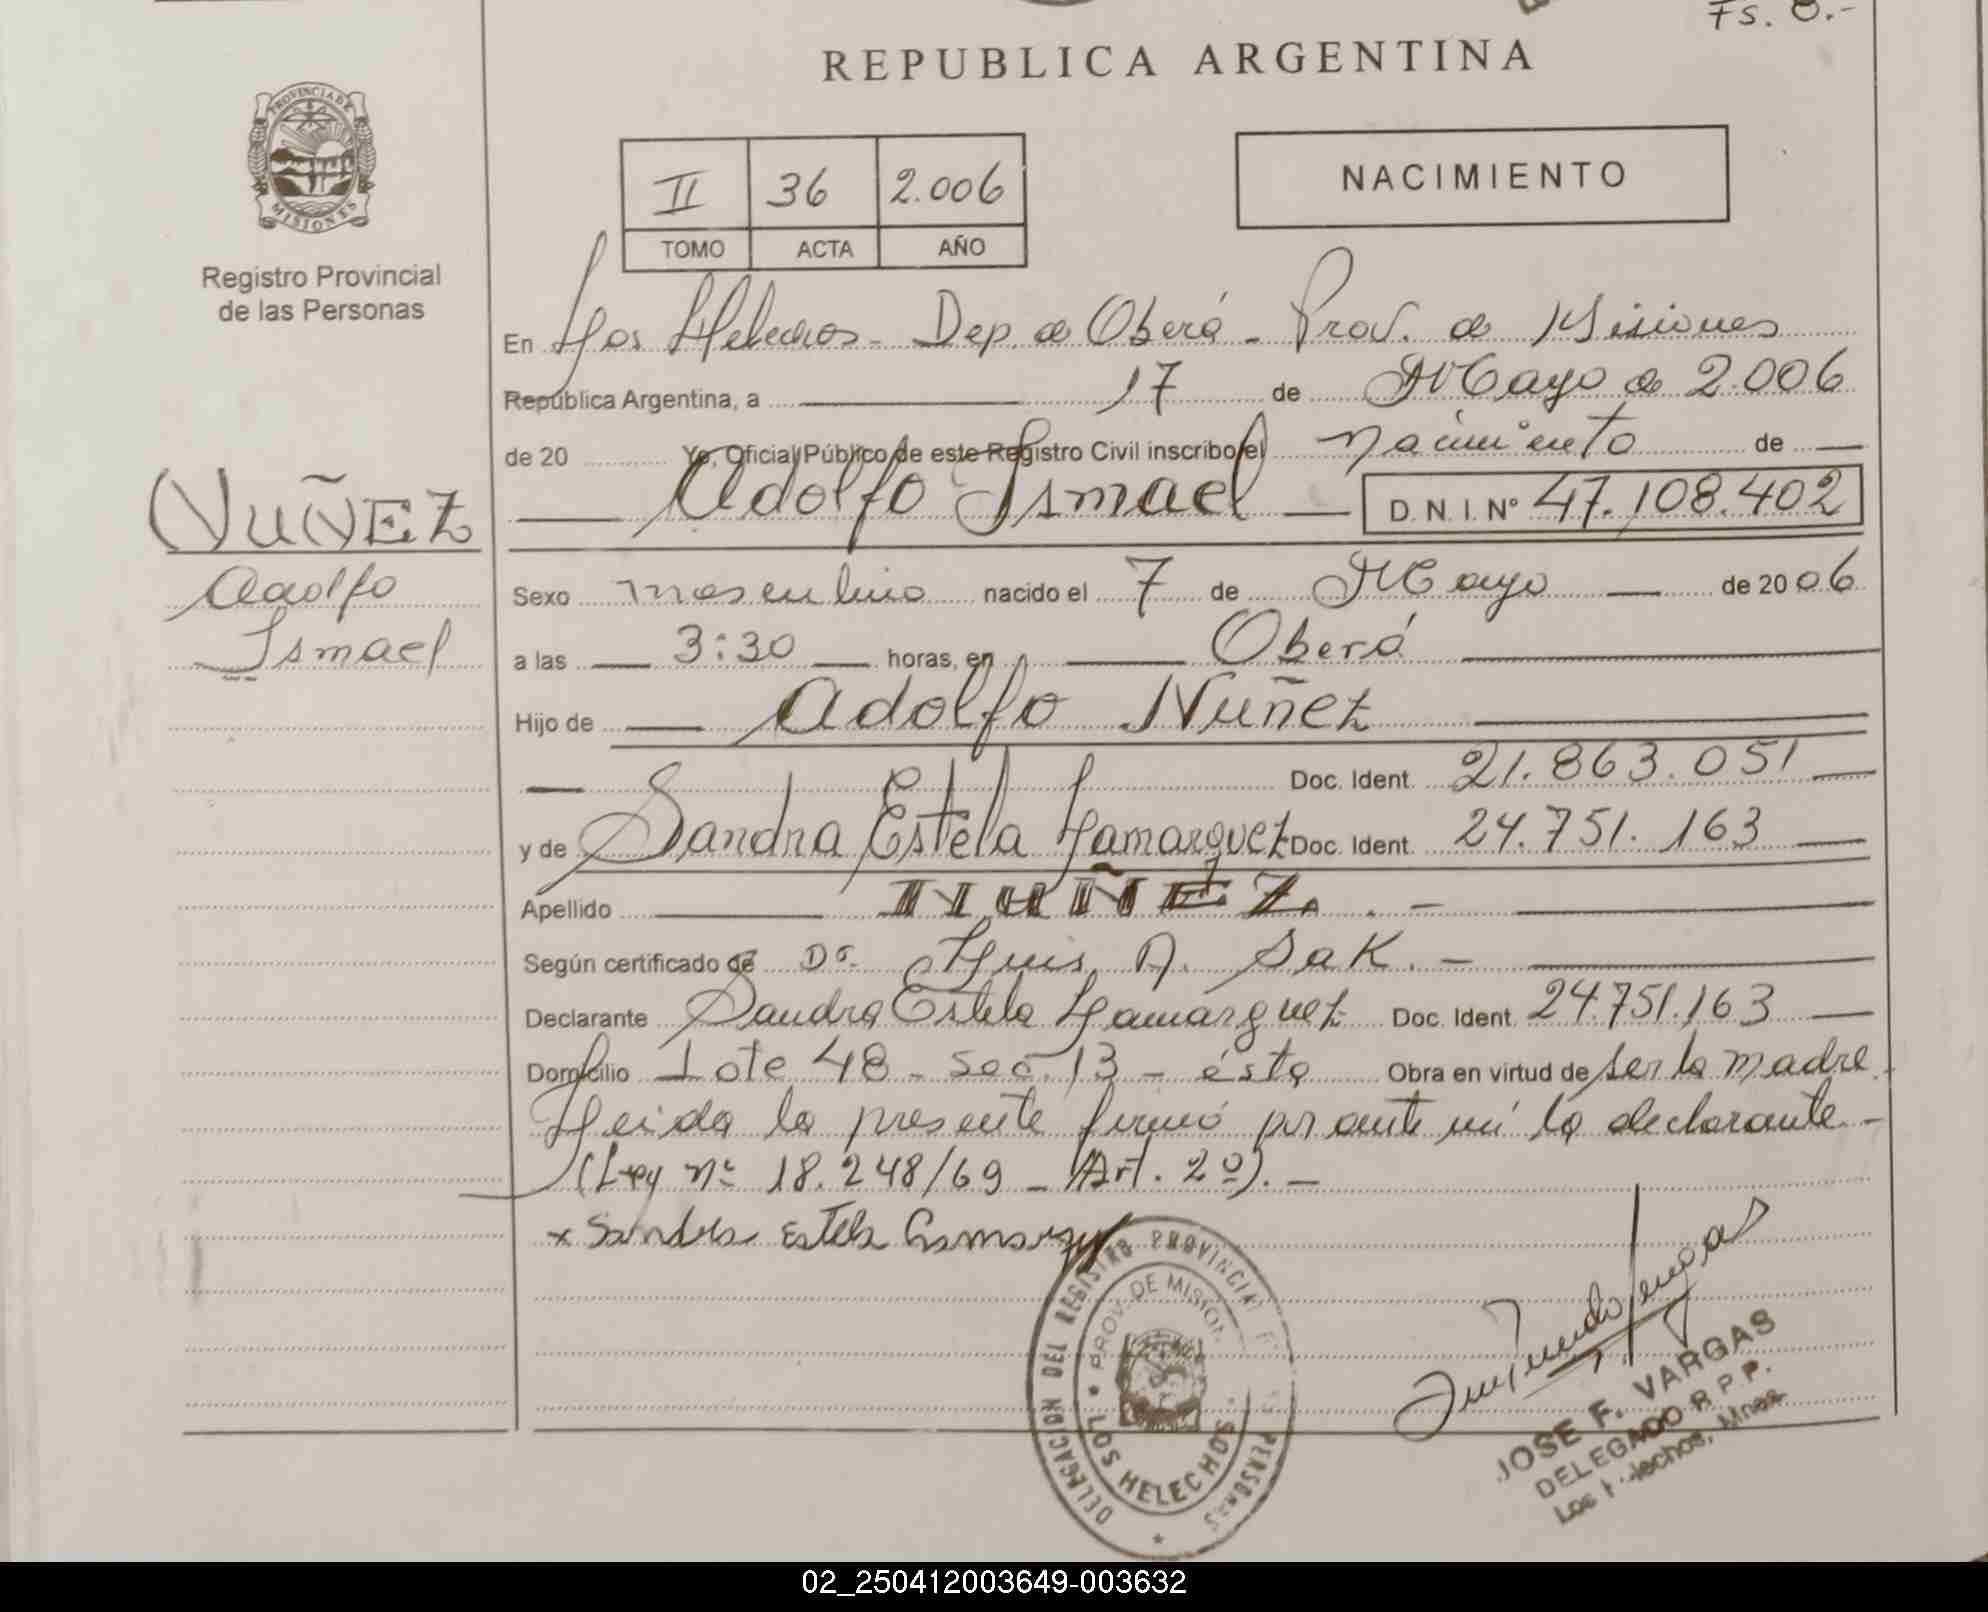 Fs. 8.-
REPUBLICA ARGENTINA
PROVINCIA DE
MISIONES
Registro Provincial
de las Personas
II 36 2.006
TOMO ACTA AÑO
NACIMIENTO
En Los Helechos - Dep. de Oberá - Prov. de Misiones
República Argentina, a 17 de Mayo de 2.006
de 20 Yo, Oficial Público de este Registro Civil inscribo el nacimiento de
Adolfo Ismael D.N.I. Nº 47.108.402
NUÑEZ
Adolfo
Ismael
Sexo masculino nacido el 7 de Mayo de 2006
a las 3:30 horas, en Oberá
Hijo de Adolfo Nuñez
Doc. Ident. 21.863.051
y de Sandra Estela Lamarquez Doc. Ident. 24.751.163
Apellido NUÑEZ. -
Según certificado de Dr. Luis A. Sak. -
Declarante Sandra Estela Lamarquez Doc. Ident. 24.751.163
Domicilio Lote 48 - Sec. 13 - ésta Obra en virtud de ser la madre.
Leida la presente firmó por ante mí la declarante -
(Ley nº 18.248/69 - Art. 2º). -
x Sandra Estela
DELEGACION DEL REGISTRO PROVINCIAL PERSONAS
PROV. DE MISION.
LOS HELECHOS
JOSE F. VARGAS
DELEGADO R.P.P.
Los Helechos, Mnes
02_250412003649-003632